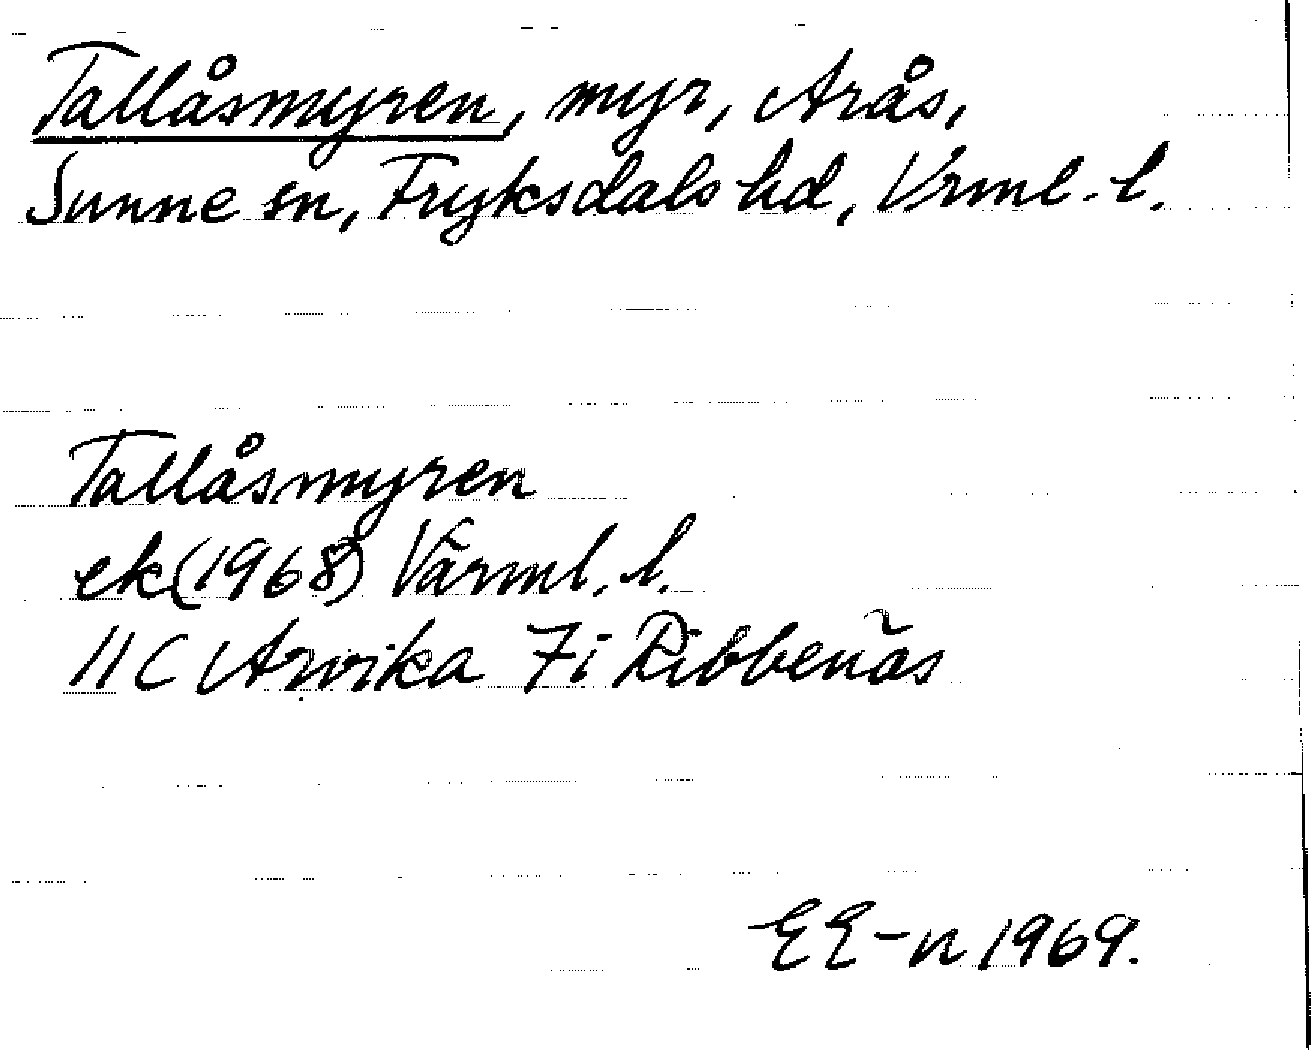 Tallåsmyren, myr, Arås,
Sunne sn, Fryksdals hd, Vrml. l.
Tallåsmyren
ek (1968) Värml. l.
11 C Arvika 7i Ribbenäs
EE-n 1969.